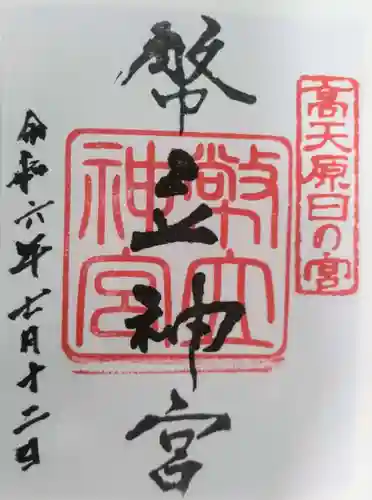 髙天原日の宮
幣立神宮
幣立
神宮
令和六年七月十二日